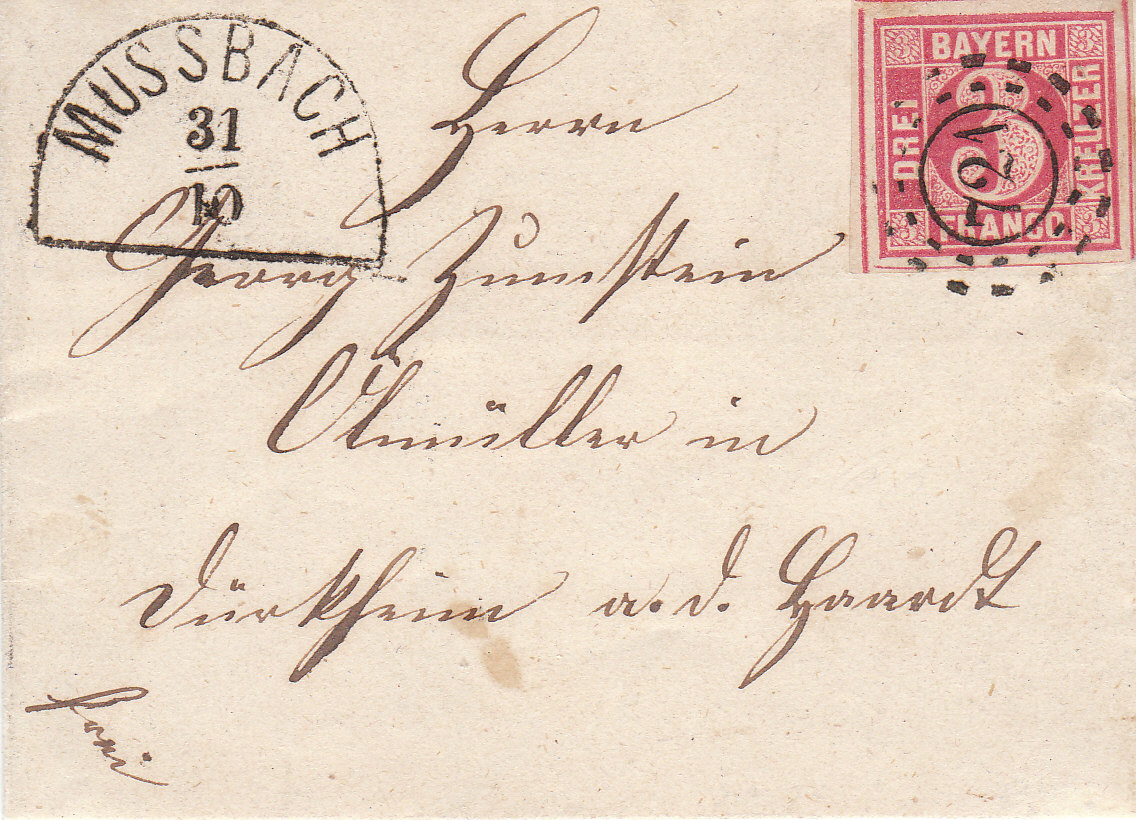 MUSSBACH
31
10
BAYERN
DREI
KREUZER
FRANCO
3
3
3
3
3
721
Herrn
Georg Zumstein
Ölmüller in
Dürkheim a. d. Haardt
frei